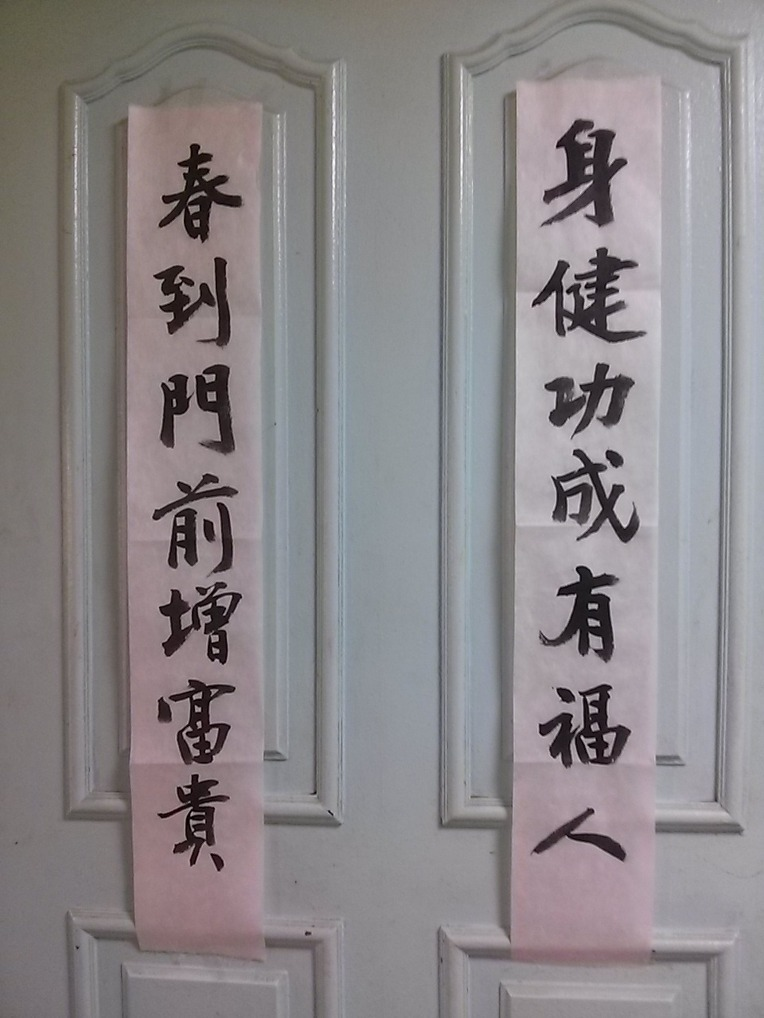 身健功成有福人
春到門前增富貴